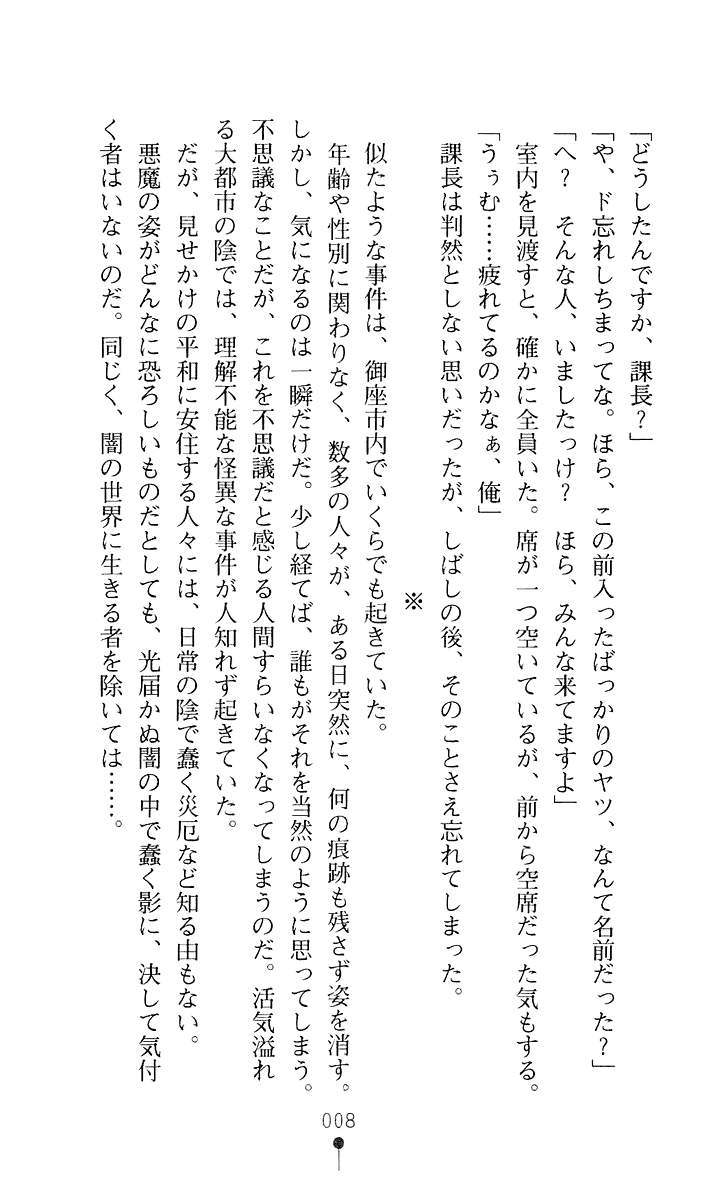 「どうしたんですか、課長？」
「や、ド忘れしちまってな。ほら、この前入ったばっかりのヤツ、なんて名前だった？」
「へ？　そんな人、いましたっけ？　ほら、みんな来てますよ」
　室内を見渡すと、確かに全員いた。席が一つ空いているが、前から空席だった気もする。
「うぅむ……疲れてるのかなぁ、俺」
　課長は判然としない思いだったが、しばしの後、そのことさえ忘れてしまった。
※
　似たような事件は、御座市内でいくらでも起きていた。
　年齢や性別に関わりなく、数多の人々が、ある日突然に、何の痕跡も残さず姿を消す。
しかし、気になるのは一瞬だけだ。少し経てば、誰もがそれを当然のように思ってしまう。
不思議なことだが、これを不思議だと感じる人間すらいなくなってしまうのだ。活気溢れ
る大都市の陰では、理解不能な怪異な事件が人知れず起きていた。
　だが、見せかけの平和に安住する人々には、日常の陰で蠢く災厄など知る由もない。
　悪魔の姿がどんなに恐ろしいものだとしても、光届かぬ闇の中で蠢く影に、決して気付
く者はいないのだ。同じく、闇の世界に生きる者を除いては……。
008